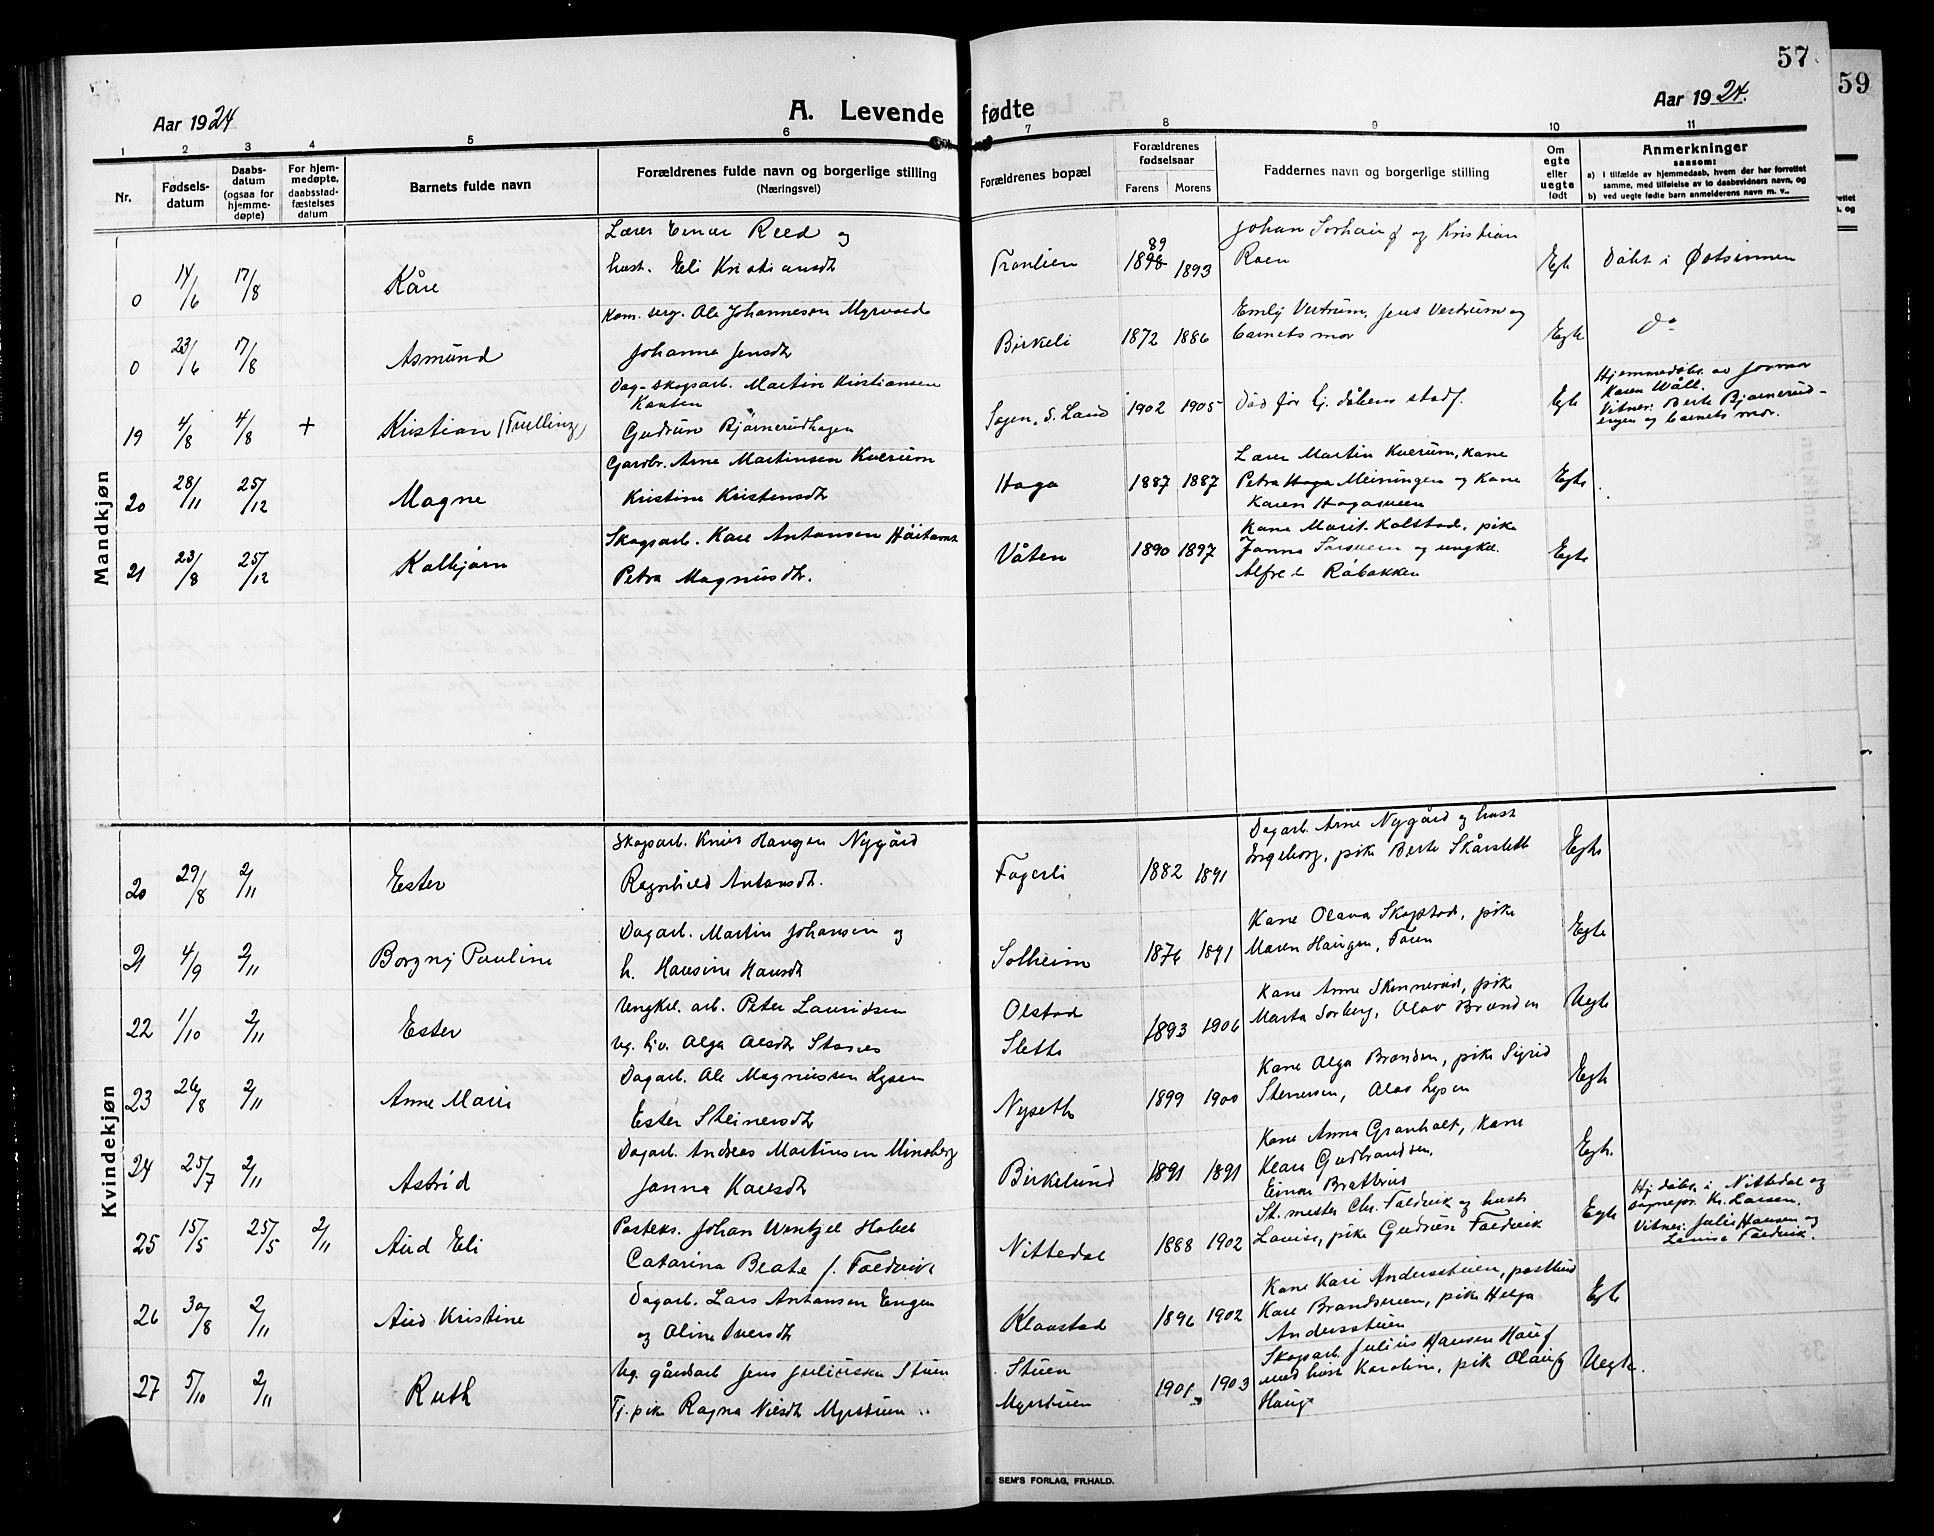 57
59
Aar 1924
A. Levende fødte
Aar 1924.
1 2 3 4 5 6 7 8 9 10 11
Nr.
Fødsels-
datum
Daabs-
datum
(ogsaa for
hjemme-
døpte)
For hjem-
medøpte,
daabsstad-
fæstelses
datum
Barnets fulde navn
Forældrenes fulde navn og borgerlige stilling
(Næringsvei)
Forældrenes bopæl
Forældrenes
fødselsaar
Farens Morens
Faddernes navn og borgerlige stilling
Om
egte
eller
uegte
født
Anmerkninger
saasom:
a) i tilfælde av hjemmedaab, hvem der har forrettet
samme, med tilføielse av to daabsvidners navn, og
b) ved uegte fødte barn anmelderens navn m. v..
Mandkjøn
Lærer Einar Reed og
0 14/6 17/8 Kåre
hust. Eli Kristiansdt
89
1898 1893
Johan og Kristian
Roen
Egte
Døbt i Østsinnen
Ole Johannesen Myrvold
0 23/6 17/8 Asmund
Johanna Jensdt
Birkeli 1872 1886
Emly Vestrum, Jens Vestrum og
barnets mor
Egte
do
Dag-skogsarb. Martin Kristiansen
19 4/8 4/8 + Kristian (Tvilling)
Gudrun Bjørnerudhagen
S. Land 1902 1905
Død før hj. dåbens stadf.
Egte
Hjemmedøbt av jormor
Karen Wåll.
Vitner: Berte Bjørnerud-
engen og barnets mor.
Gardbr. Arne Martinsen Kverum
20 28/11 25/12 Magne
Kristine Kristensdt
Haga 1887 1887
Lærer Martin Kverum, kone
Petra Haga Meiningen og kone
Karen Hagasveen
Egte
Skogsarb. Kare Antonsen
21 23/8 25/12 Kolbjørn
Petra Magnusdt.
Våten 1890 1897
Kone Marit Kolstad, pike
Janna og ungkl.
Alfred Råbakken
Egte
Kvindekjøn
Skogsarb. Knut Hansen Nygård
20 29/8 2/11 Ester
Ragnhild Antonsdt.
Fagerli 1882 1891
Dagarb. Arne Nygård og hust
Ingeborg, pike Berte Skårslett
Egte
Dagarb. Martin Johansen og
21 4/9 2/11 Borgny Pauline
h. Hansine Hansdt
Solheim 1876 1891
Kone Olava Skogstad, pike
Maren Haugen, Faren
Egte
Ungkl. arb. Peter Lauridsen
22 1/10 2/11 Ester
Ug. Olga Olesdt
Olstad
Slette
1893 1906
Kone Anne Skinnerud, pike
Marta Sorberg, Olav Brænden
Uegte
Dagarb. Ole Magnussen Lysen
23 26/8 2/11 Anne Marie
Ester Steinersdt
Nyseth 1899 1900
Kone Olga Brænden, pike Sigrid
Stenersen, Olav Lysen
Egte
Dagarb. Andreas Martinsen Minsberg
24 25/7 2/11 Astrid
Janna Karlsdt
Birkelund 1891 1891
Kone Anna Granholt, kone
Klara Gudbrandsen,
Einar Brattrud
Egte.
Johan Wentzel Habel
25 15/5 25/5 2/11 Aud Eli
Catarina Beate f. Faldvik
Nittedal 1888 1902
St. mester Chr. Faldvik og hust
Louise, pike Gudrun Faldvik
Egte
Hj. døbt. i Nittedal av
sognepr. Kr. Larsen.
Vitner: Julie Hansen og
Louise Faldvik.
Dagarb. Lars Antonsen Engen
26 30/8 2/11 Aud Kristine
og Oline Iversdt
Klaastad 1896 1902
Kone Kari Andersstuen, postbud
Kare Brandsveen, pike Helga
Andersstuen
Egte
Ug. gårdsarb Jens Juliussen Stuen
27 5/10 2/11 Ruth
Tj. pike Ragna Nilsdt Myrstuen
Stuen
Myrstuen
1901 1903
Skogsarb. Julius Hansen Haug
med hust Karoline, pike Olaug
Haug
Uegte.
E. SEM'S FORLAG, FR.HALD.